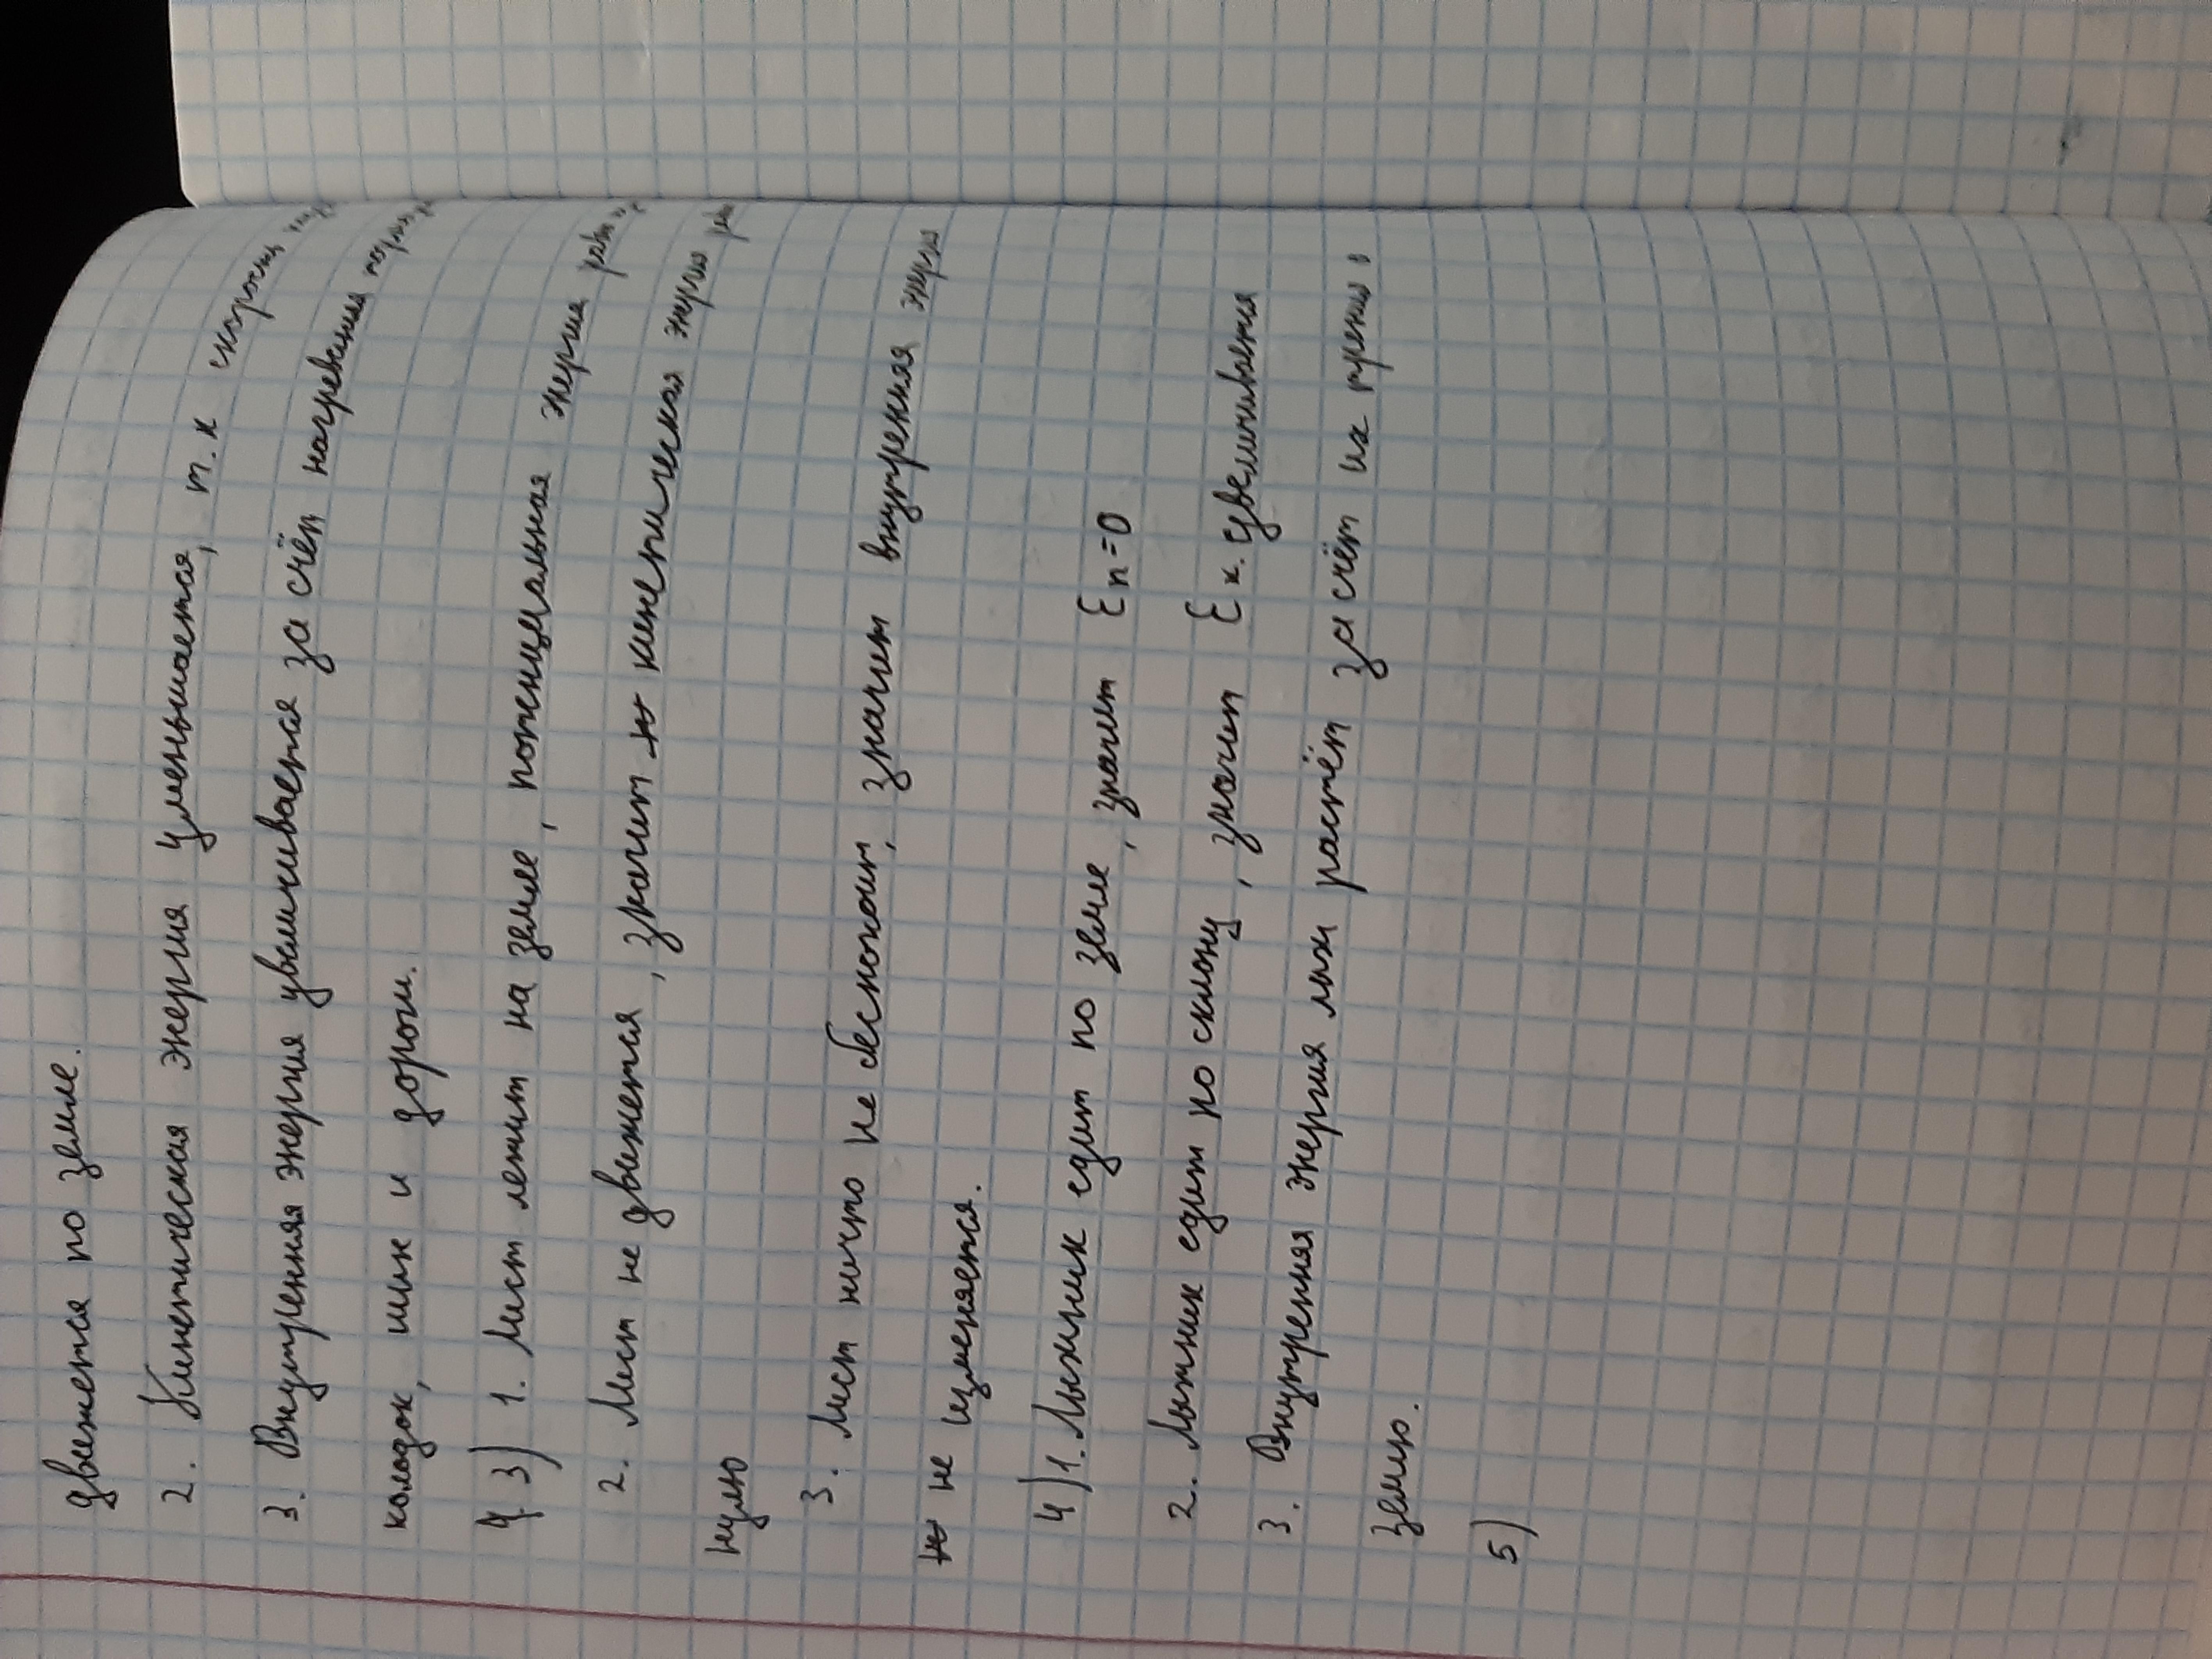 движется по земле.
2. Кинетическая энергия уменьшается, т.к скорость
3. Внутренняя энергия увеличивается за счёт нагревания
колодок, шин и дороги.
3) 1. Лист лежит на земле, потенциальная энергия
2. Лист не движется, значит кинетическая энергия
нулю
3. Лист ничто не беспокоит, значит внутреняя
не изменяется.
4) 1. Лыжник едит по земле, значит Eп=0
2. Лыжник едит по склону, значит Eк. увеличивается
3. Внутренняя энергия лыж растёт за счёт их трения
землю.
5)